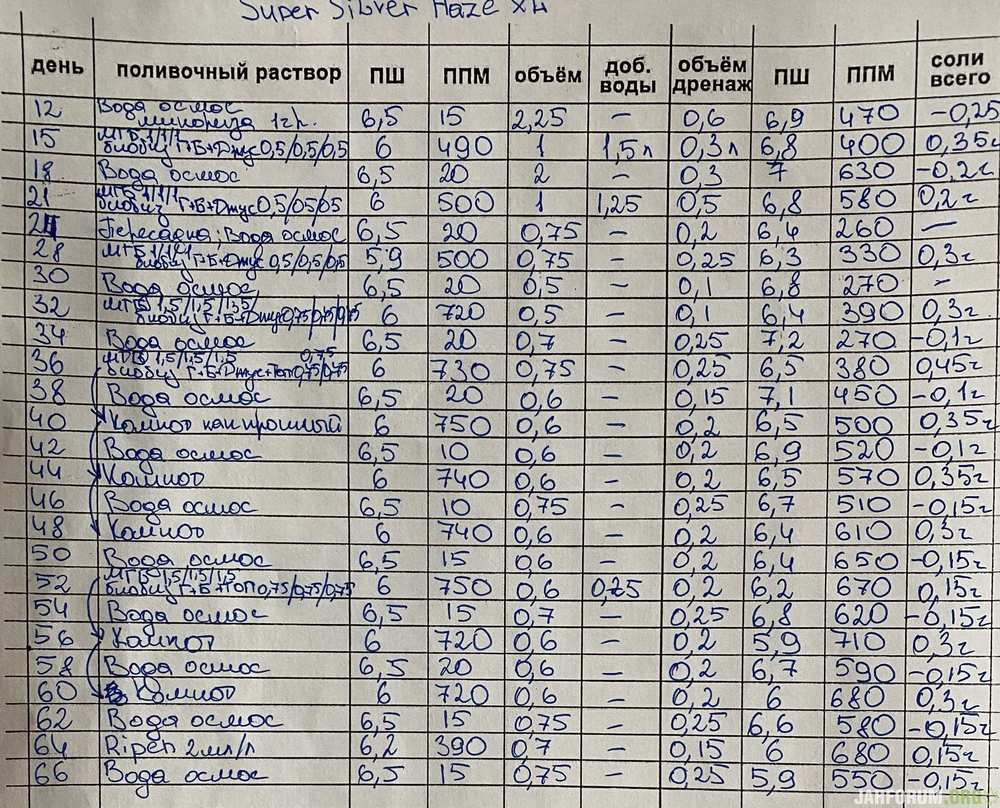 Super Silver Haze XL
день поливочный раствор ПШ ППМ объём доб. воды объём дренаж ПШ ППМ соли всего
12 Вода осмос микориза 1гр. 6,5 15 2,25 – 0,6 6,9 470 -0,25
15 МГБ 1/1/1 биобиз Г+Б+Джус 0,5/0,5/0,5 6 490 1 1,5л 0,3л 6,8 400 0,35г
18 Вода осмос 6,5 20 2 – 0,3 7 630 -0,2г
21 МГБ 1/1/1 биобиз Г+Б+Джус 0,5/05/05 6 500 1 1,25 0,5 6,8 580 0,2г
24 Пересадка; Вода осмос 6,5 20 0,75 – 0,2 6,4 260 –
28 МГБ 1/1/1 биобиз Г+Б+Джус 0,5/0,5/0,5 5,9 500 0,75 – 0,25 6,3 330 0,3г
30 Вода осмос 6,5 20 0,5 – 0,1 6,8 270 –
32 МГБ 1,5/1,5/1,5/ биобиз Г+Б+Джус 0,75/0,75/0,75 6 720 0,5 – 0,1 6,4 390 0,3г
34 Вода осмос 6,5 20 0,7 – 0,25 7,2 270 -0,1г
36 МГБ 1,5/1,5/1,5 0,75 биобиз Г+Б+Джус+Топ 0,75/0,75 6 730 0,75 – 0,25 6,5 380 0,45г
38 Вода осмос 6,5 20 0,6 – 0,15 7,1 450 -0,1г
40 Компот как прошлый 6 750 0,6 – 0,2 6,5 500 0,35г
42 Вода осмос 6,5 10 0,6 – 0,2 6,9 520 -0,1г
44 Компот 6 740 0,6 – 0,2 6,5 570 0,35г
46 Вода осмос 6,5 10 0,75 – 0,25 6,7 510 -0,15г
48 Компот 6 740 0,6 – 0,2 6,4 610 0,3г
50 Вода осмос 6,5 15 0,6 – 0,2 6,4 650 -0,15г
52 МГБ 1,5/1,5/1,5 биобиз Г+Б+Топ 0,75/0,75/0,75 6 750 0,6 0,25 0,2 6,2 670 0,15г
54 Вода осмос 6,5 15 0,7 – 0,25 6,8 620 -0,15г
56 Компот 6 720 0,6 – 0,2 5,9 710 0,3г
58 Вода осмос 6,5 20 0,6 – 0,2 6,7 590 -0,15г
60 Компот 6 720 0,6 – 0,2 6 680 0,3г
62 Вода осмос 6,5 15 0,75 – 0,25 6,6 580 -0,15г
64 Ripen 2мл/л 6,2 390 0,7 – 0,15 6 680 0,15г
66 Вода осмос 6,5 15 0,75 – 0,25 5,9 550 -0,15г
JAHFORUM.ORG